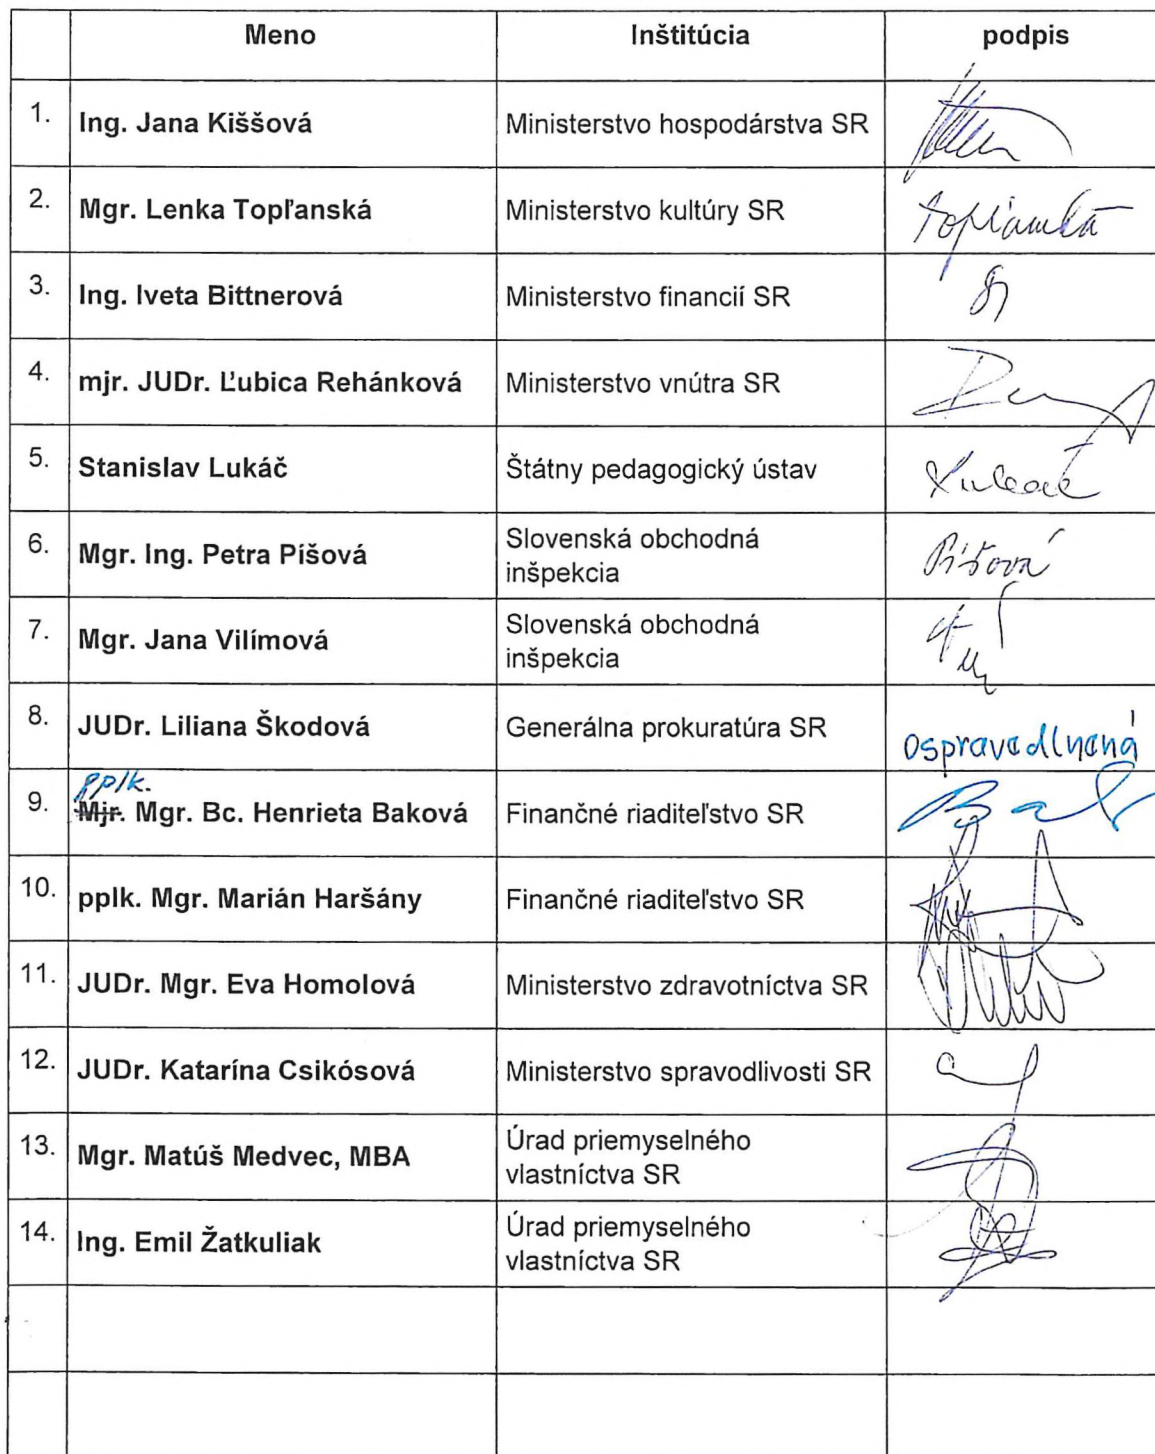 Meno Inštitúcia podpis
1. Ing. Jana Kiššová Ministerstvo hospodárstva SR
2. Mgr. Lenka Topľanská Ministerstvo kultúry SR
3. Ing. Iveta Bittnerová Ministerstvo financií SR
4. mjr. JUDr. Ľubica Rehánková Ministerstvo vnútra SR
5. Stanislav Lukáč Štátny pedagogický ústav
6. Mgr. Ing. Petra Píšová Slovenská obchodná
inšpekcia Píšová
7. Mgr. Jana Vilímová Slovenská obchodná
inšpekcia
8. JUDr. Liliana Škodová Generálna prokuratúra SR ospravedlnená
pplk.
9. Mjr. Mgr. Bc. Henrieta Baková Finančné riaditeľstvo SR
10. pplk. Mgr. Marián Haršány Finančné riaditeľstvo SR
11. JUDr. Mgr. Eva Homolová Ministerstvo zdravotníctva SR
12. JUDr. Katarína Csikósová Ministerstvo spravodlivosti SR
13. Mgr. Matúš Medvec, MBA Úrad priemyselného
vlastníctva SR
14. Ing. Emil Žatkuliak Úrad priemyselného
vlastníctva SR